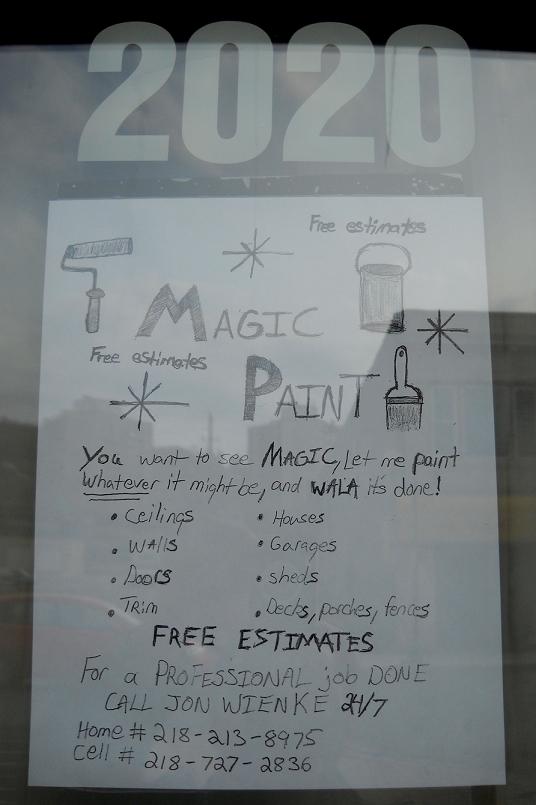 2020
Free estimates
MAGIC
Free estimates
PAINT
You want to see MAGIC, Let me paint
whatever it might be, and WALA it's done!
• Ceilings
• Houses
• WAlls
• Garages
• DooRs
• sheds
• TRim
• Decks, porches, fences
FREE ESTIMATES
For a PROFESSIONAL job DONE
CALL JON WIENKE 24/7
Home # 218-213-8975
Cell # 218-727-2836